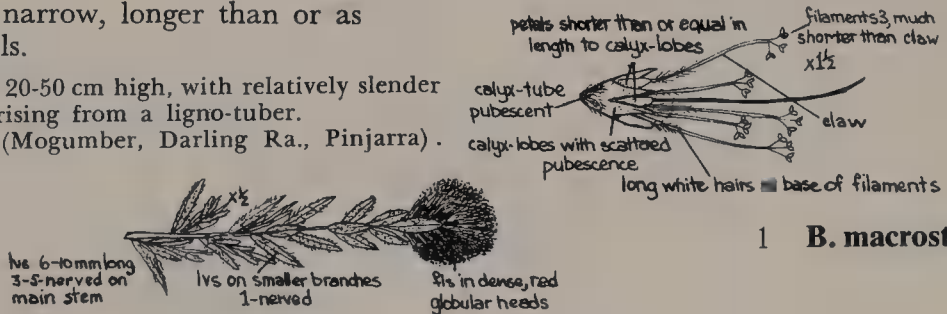 narrow, longer than or as
ls.
20-50 cm high, with relatively slender
rising from a ligno-tuber.
(Mogumber, Darling Ra., Pinjarra).
petals shorter than or equal in
length to calyx-lobes
filaments 3, much
shorter than claw
x1½
calyx-tube
pubescent
claw
calyx-lobes with scattered
pubescence
long white hairs base of filaments
1 B. macrost
x½
lvs 6-10mm long
3-5-nerved on
main stem
lvs on smaller branches
1-nerved
fls in dense, red
globular heads